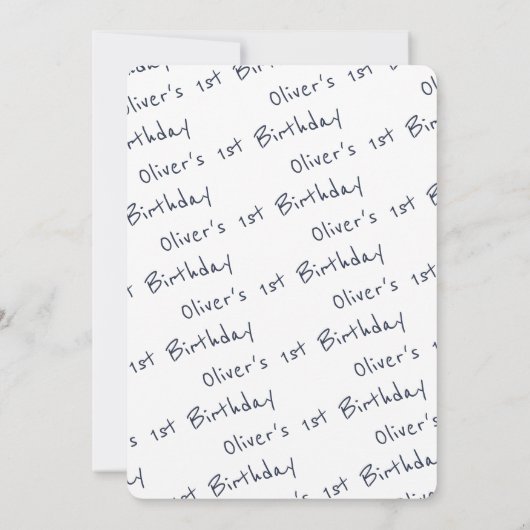 Oliver's 1st Birthday
Oliver's 1st
Oliver's 1st Birthday
Birthday Oliver's 1st
Oliver's 1st Birthday
Birthday Oliver's 1st
Oliver's 1st Birthday
1st Birthday Oliver's 1st
Oliver's 1st Birthday
1st Birthday Oliver's
Oliver's 1st Birthday
1st Birthday Oliver's
Oliver's 1st Birthda